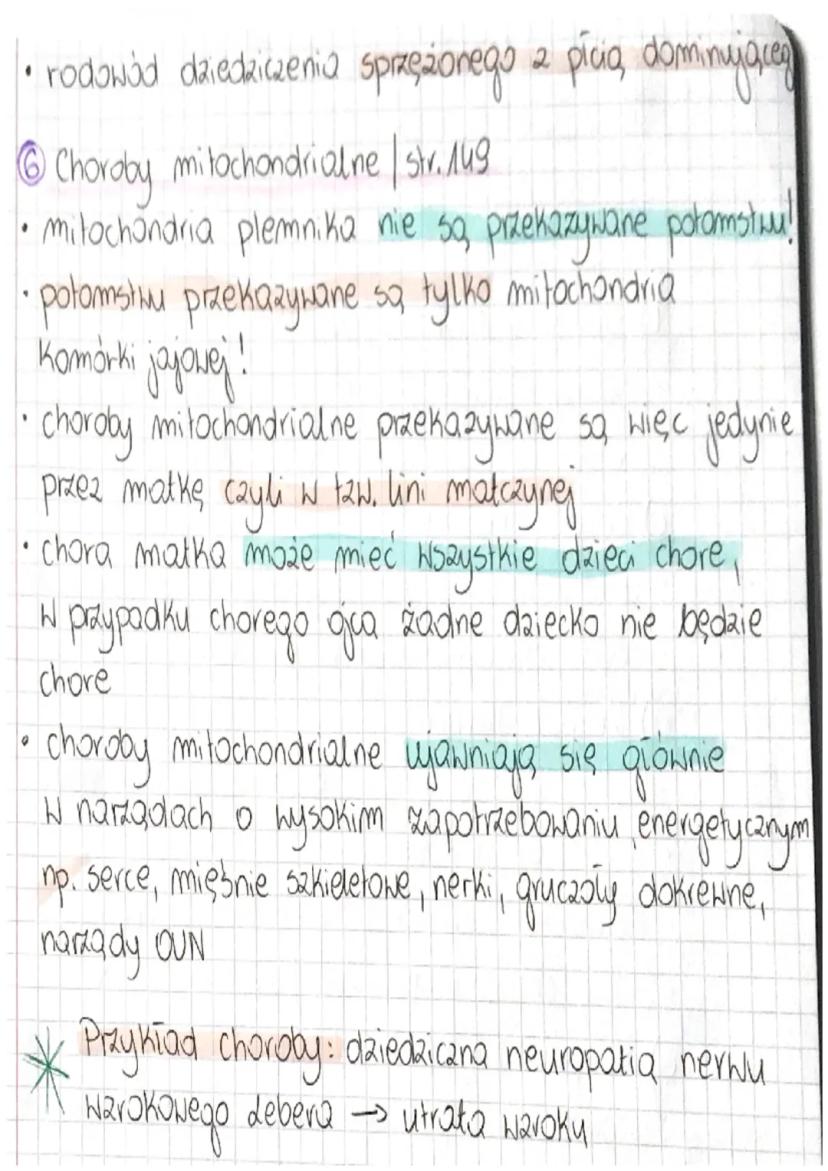 • rodowód dziedziczenia sprzężonego z płcią dominującego
6 Choroby mitochondrialne | str. 149
• mitochondria plemnika nie są przekazywane potomstwu!
• potomstwu przekazywane są tylko mitochondria
komórki jajowej!
• choroby mitochondrialne przekazywane są więc jedynie
przez matkę czyli w tzw. lini matczynej
• chora matka może mieć wszystkie dzieci chore,
w przypadku chorego ojca żadne dziecko nie będzie
chore
• choroby mitochondrialne ujawniają się głównie
w narządach o wysokim zapotrzebowaniu energetycznym
np. serce, mięśnie szkieletowe, nerki, gruczoły dokrewne,
narządy OUN
Przykład choroby: dziedziczna neuropatia nerwu
wzrokowego Lebera → utrata wzroku